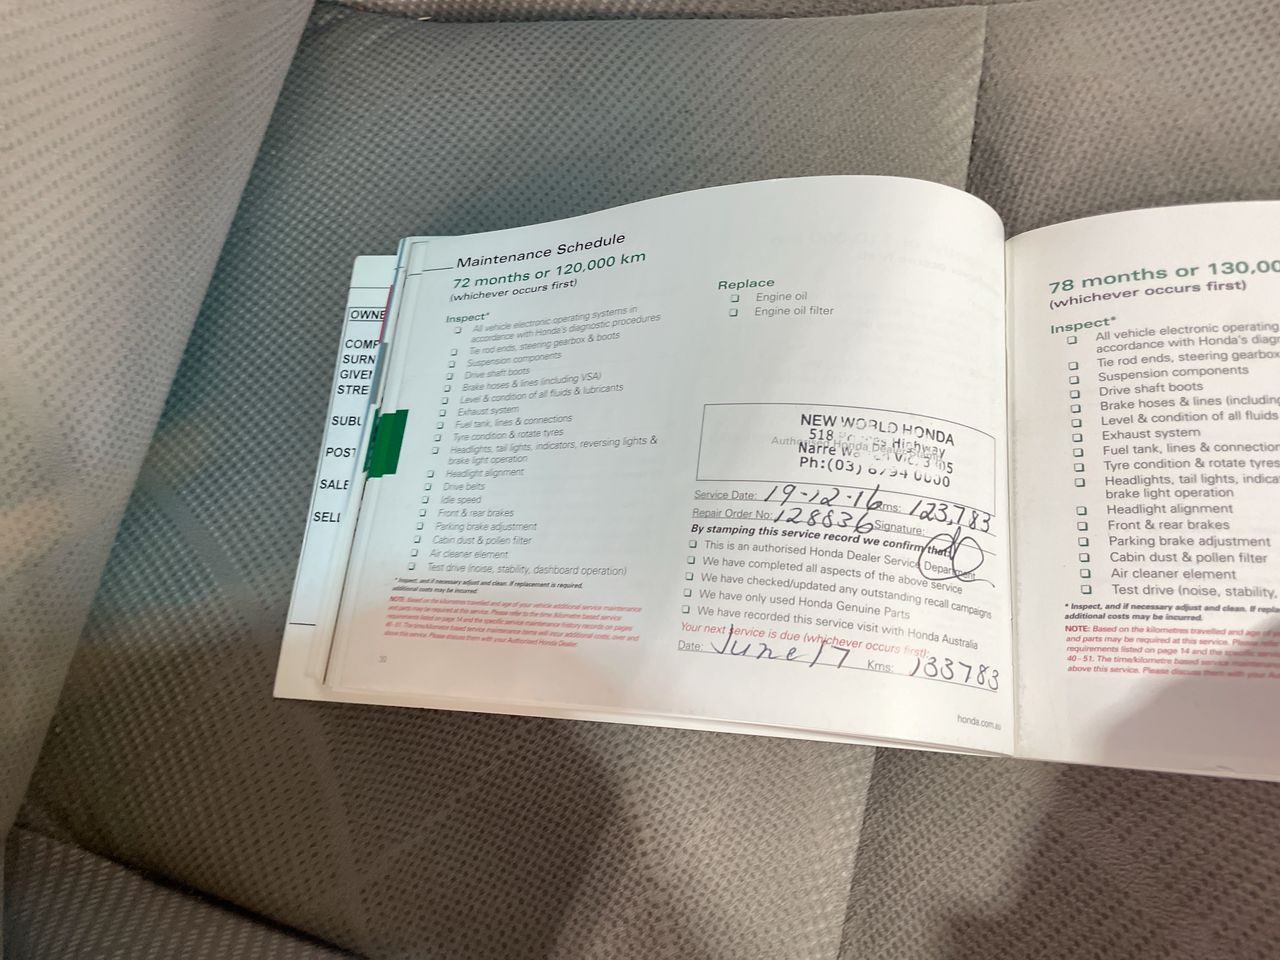 OWNE
COMP
SURN
GIVEN
STRE
SUBU
POST
SALE
SELL
Maintenance Schedule
72 months or 120,000 km
(whichever occurs first)
Inspect*
All vehicle electronic operating systems in
accordance with Honda's diagnostic procedures
Tie rod ends, steering gearbox & boots
Suspension components
Drive shaft boots
Brake hoses & lines (including VSA)
Level & condition of all fluids & lubricants
Exhaust system
Fuel tank, lines & connections
Tyre condition & rotate tyres
Headlights, tail lights, indicators, reversing lights &
brake light operation
Headlight alignment
Drive belts
Idle speed
Front & rear brakes
Parking brake adjustment
Cabin dust & pollen filter
Air cleaner element
Test drive (noise, stability, dashboard operation)
* Inspect, and if necessary adjust and clean. If replacement is required,
additional costs may be incurred.
NOTE: Based on the kilometres travelled and age of your vehicle additional service maintenance
and parts may be required at this service. Please refer to the time/kilometre based service
requirements listed on page 14 and the specific service maintenance history records on pages
40 - 51. The time/kilometre based service maintenance items will incur additional costs, over and
above this service. Please discuss them with your Authorised Honda Dealer.
30
Replace
Engine oil
Engine oil filter
NEW WORLD HONDA
518 Highway
Authorised Honda Dealer
Narre
Ph:(03)
Service Date: 19-12-16 Kms: 123,783
Repair Order No: 128836 Signature:
By stamping this service record we confirm that:
This is an authorised Honda Dealer Service Department
We have completed all aspects of the above service
We have checked/updated any outstanding recall campaigns
We have only used Honda Genuine Parts
We have recorded this service visit with Honda Australia
Your next service is due (whichever occurs first):
Date: June 17 Kms: 133783
honda.com.au
78 months or 130,00
(whichever occurs first)
Inspect*
All vehicle electronic operating
accordance with Honda's diagn
Tie rod ends, steering gearbox
Suspension components
Drive shaft boots
Brake hoses & lines (including
Level & condition of all fluids
Exhaust system
Fuel tank, lines & connection
Tyre condition & rotate tyres
Headlights, tail lights, indica
brake light operation
Headlight alignment
Front & rear brakes
Parking brake adjustment
Cabin dust & pollen filter
Air cleaner element
Test drive (noise, stability,
* Inspect, and if necessary adjust and clean. If repla
additional costs may be incurred.
NOTE: Based on the kilometres travelled and age of
and parts may be required at this service. Please
requirements listed on page 14 and the specific
40 - 51. The time/kilometre based service maintenance
above this service. Please discuss them with your Au